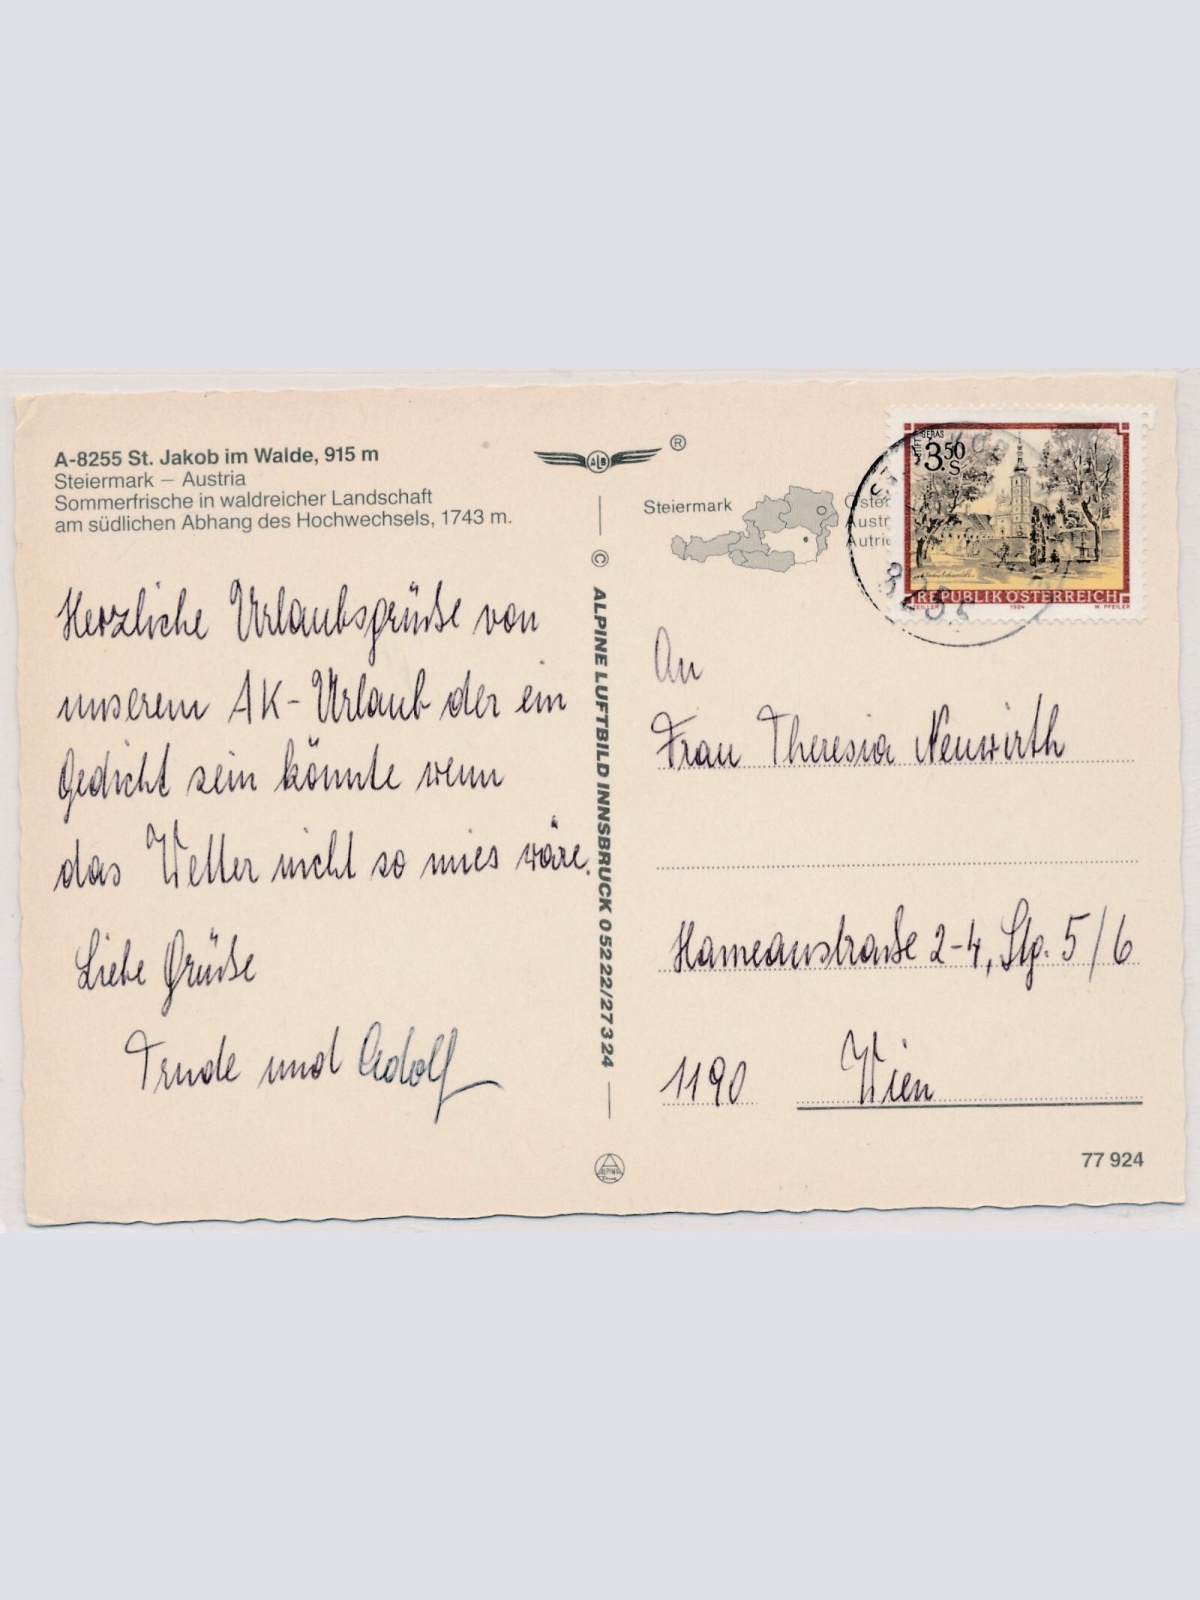 A-8255 St. Jakob im Walde, 915 m
Steiermark – Austria
Sommerfrische in waldreicher Landschaft
am südlichen Abhang des Hochwechsels, 1743 m.
Herzliche Urlaubsgrüße von
unserem AK-Urlaub der ein
Gedicht sein könnte wenn
das Wetter nicht so mies wäre.
Liebe Grüße
Trude und Adolf
ALB
®
© ALPINE LUFTBILD INNSBRUCK 0 52 22/27 3 24
ALPINE
Steiermark
Öster
Austr
Autric
STIFT GERAS
3.50
S
REPUBLIK ÖSTERREICH
ZEILLER 1984 W. PFEILER
8255
An
Frau Theresia Neuwirth
Hameaustraße 2-4, Stg. 5/6
1190 Wien
77 924